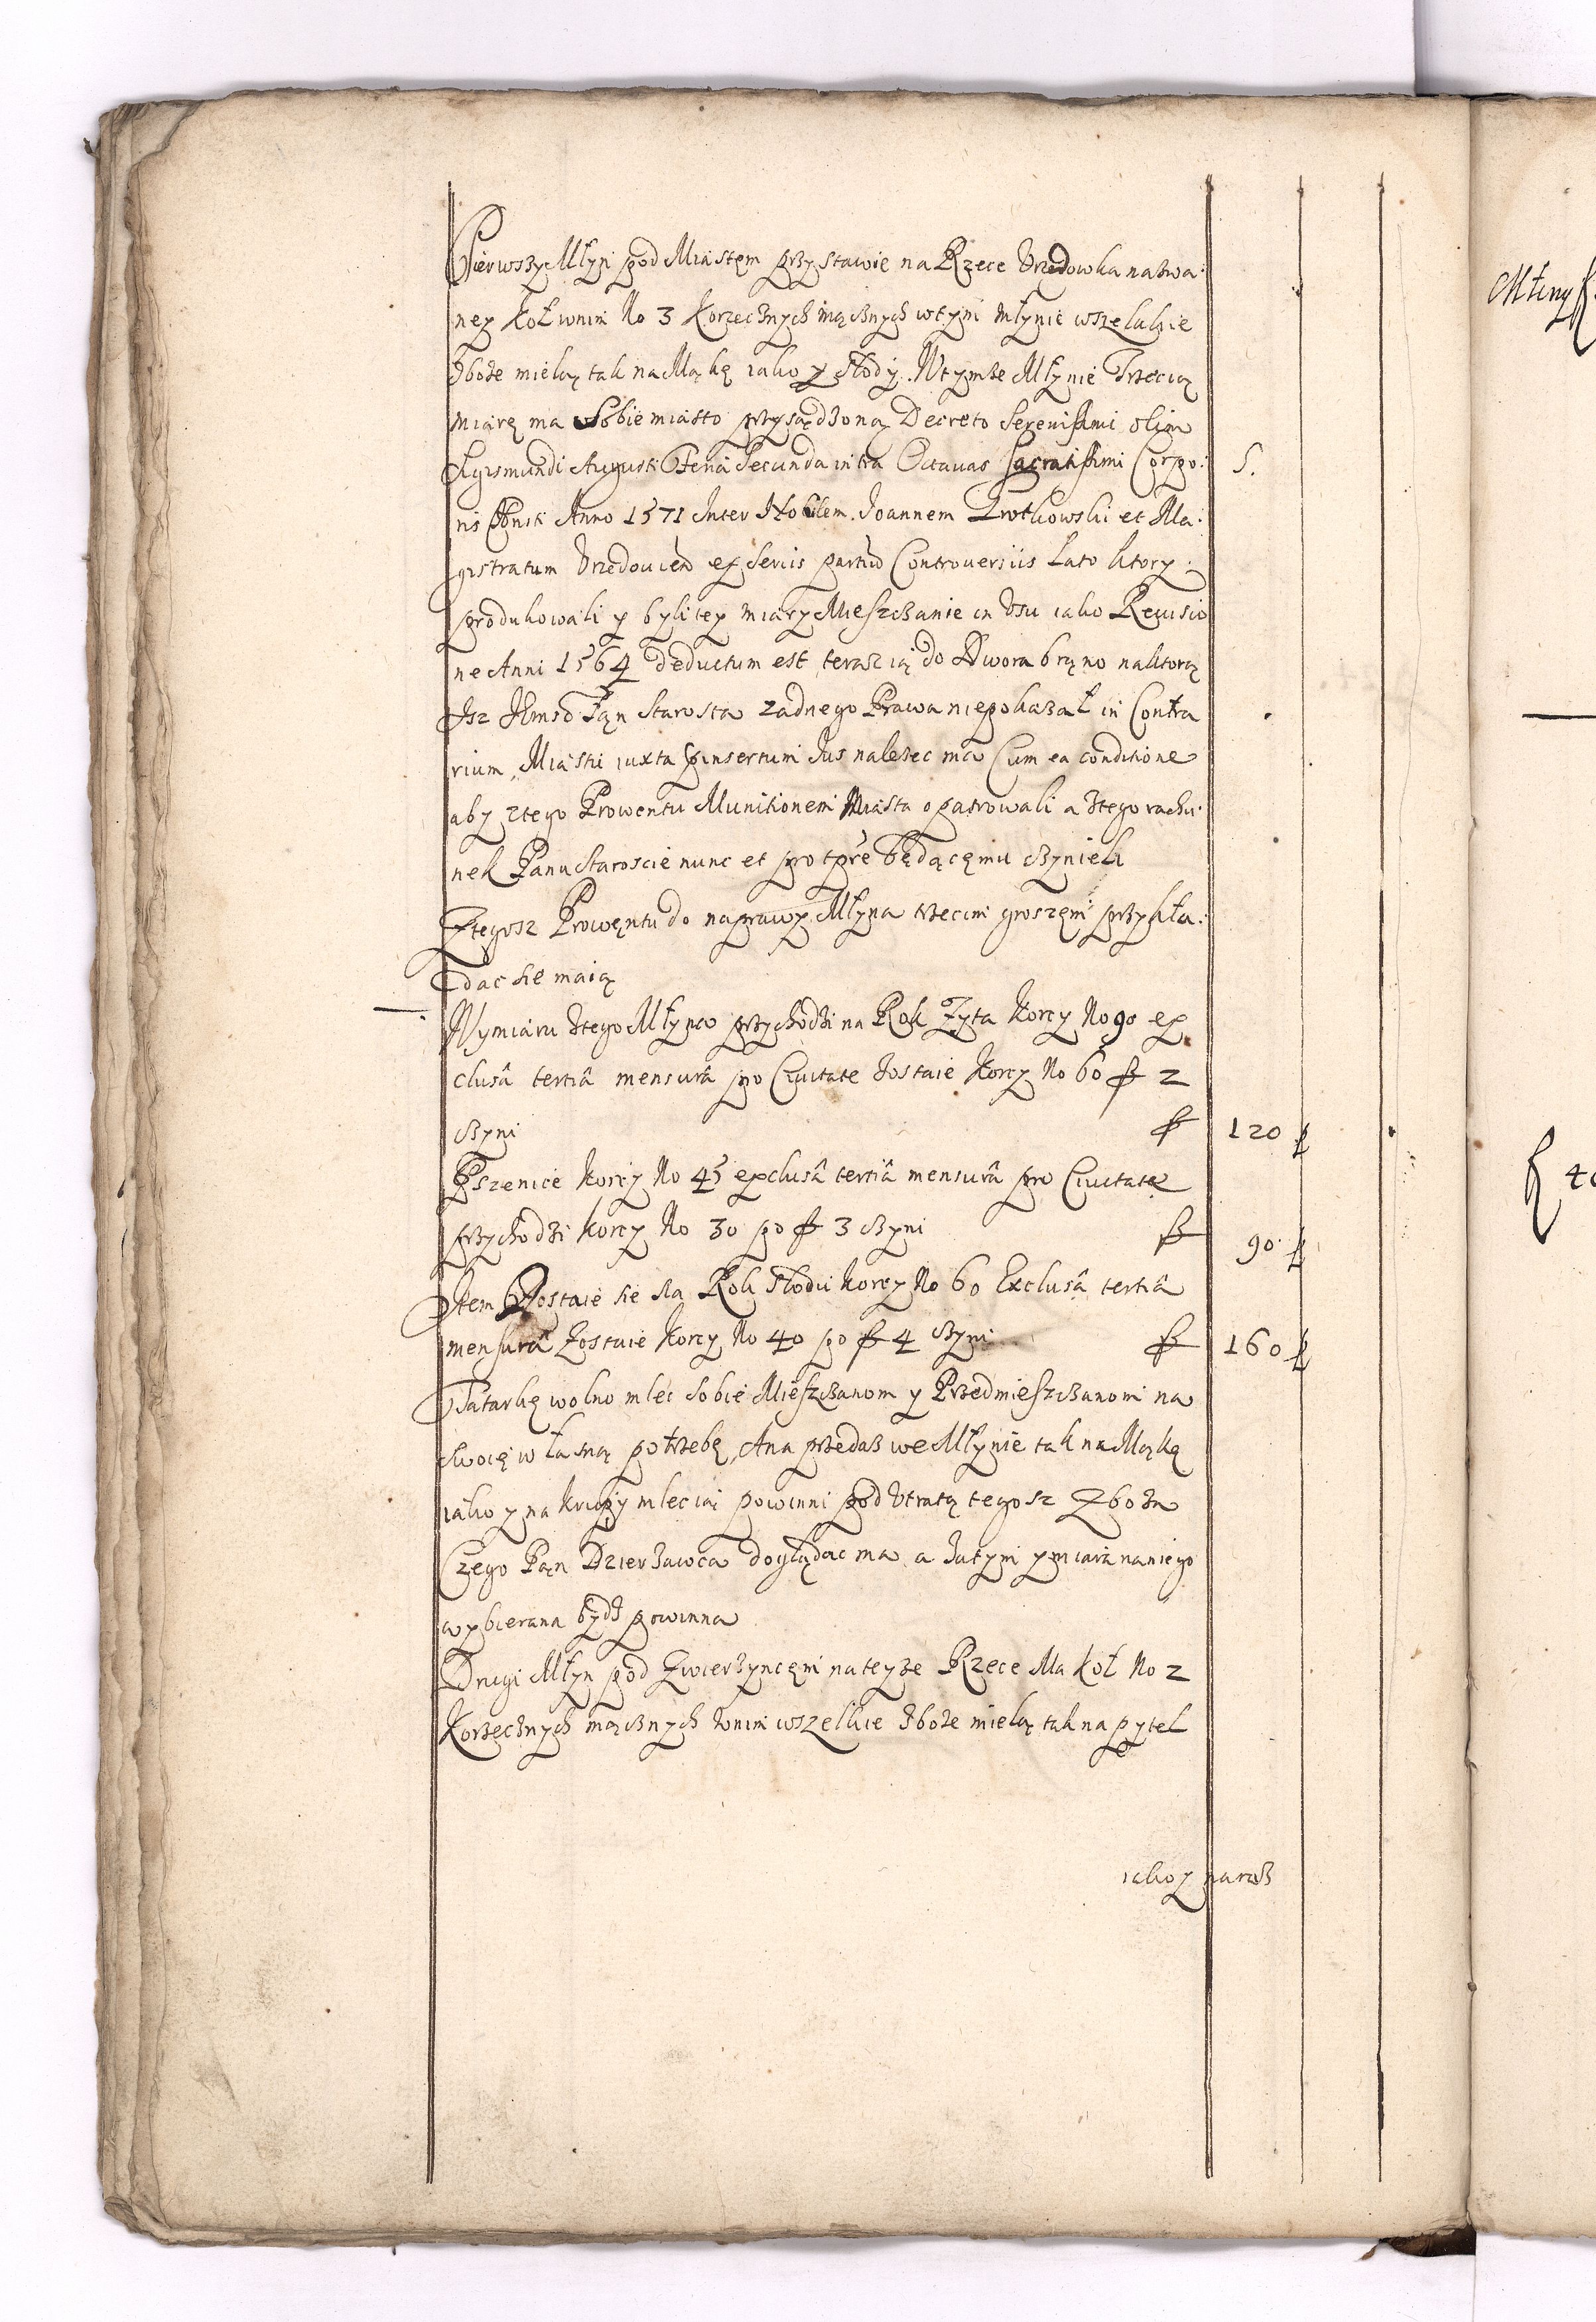 Pierwszy Młyn pod Miastem przy stawie na Rzece Vrzędowka nazwa:
ney Koł wnim No 3 Korzecznych mącznych wtym młynie wszelakie
Zboże mielą tak na Mąkę iako y słody. Wtymze Młynie Trzecią
miarę ma wSobie miasto przysądzoną Decreto Serenissimi olim
Sigismundi Augusti Feria Secunda intra Octauas Sacratissimi Corpo: S.
ris Christi Anno 1571 Inter Nobilem Joannem et Ma:
gistratum Vrzedouien ex seriis partiu Controuersiis Lato ktory
produkowali y byli tey miary Mieszczanie in Vsu iako Reuisio
ne Anni 1564 deductum est, teraz ią do Dwora brąno naktorą
Isz Jkmsc Pąn Starosta zadnego Prawa niepokazał in Contra
rium, Miastu iuxta insertum Jus nalezec ma Cum ea conditione
aby ztego Prowentu Munitionem Miasta opatrowali a ztego rachu:
nek Panu Staroscie nunc et pro tpre będącęmu czynieli
Ztegosz Prowęntu do naprawy Młyna trzecim groszęm przykła:
dac sie maią
Wymiaru ztego Młyna przychodzi na Rok Zyta Korcy No 90 ex
clusâ tertiâ mensurâ pro Ciuitate Zostaie Korcy No 60 f 2
czyni f 120
Pszenice Korcy No 45 exclusâ tertiâ mensurâ pro Ciuitate
przychodzi korcy No 30 po f 3 czyni f 90
Item Dostaie sie na Rok Słodu korcy No 60 Exclusâ tertiâ
mensurâ Zostaie Korcy No 40 po f 4 czyni f 160
Tatarkę wolno mlec sobie Mieszczanom y Przedmieszczanom na
swoię własną potrzebę, Ana przedaz we Młynie tak na Mąkę
iako y na krupy mlec ią powinni pod Vtratą tegosz Zboza
Czego Pąn Dzierzawca doglądac ma a zatym y miara naniego
wybierana bydz powinna
Drugi Młyn pod Zwierzyncęm nateyze Rzece Ma Koł No 2
Korzecznych mącznych wnim wszelkie Zboze mielą tak na pytel
iako y naraz
Młyny
f